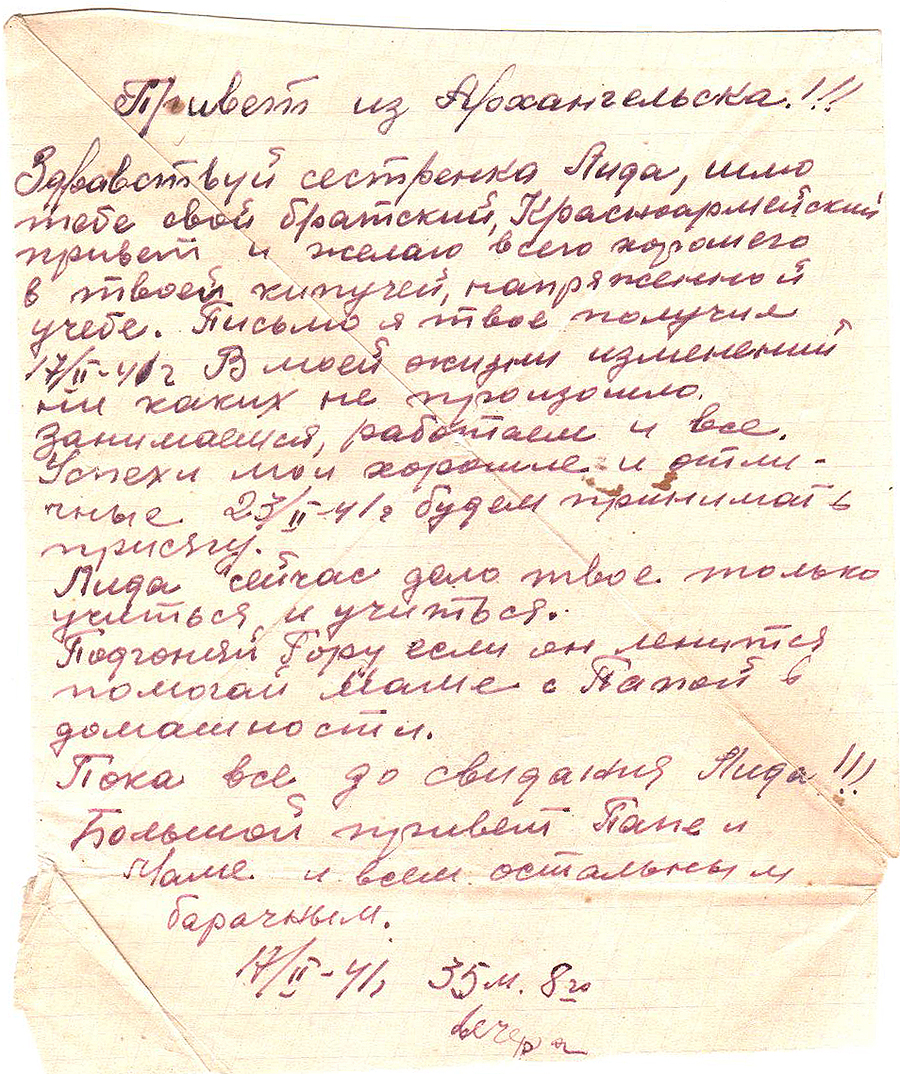 Привет из Архангельска!!!
Здравствуй сестренка Лида, шлю
тебе свой братский, Красноармейский
привет и желаю всего хорошего
в твоей кипучей, напряженной
учебе. Письмо я твое получил
17/II-41г В моей жизни изменений
ни каких не произошло.
Занимаемся, работаем и все.
Успехи мои хорошие и отли-
чные 23/II-41г будем принимать
присягу.
Лида сейчас дело твое только
учиться и учиться.
Подгоняй Гору если он ленится
помогай Маме с Папой в
домашности.
Пока все до свидания Лида!!!
Большой привет Папе и
Маме и всем остальным
барачным.
17/II-41г 35м. 8го
вечера